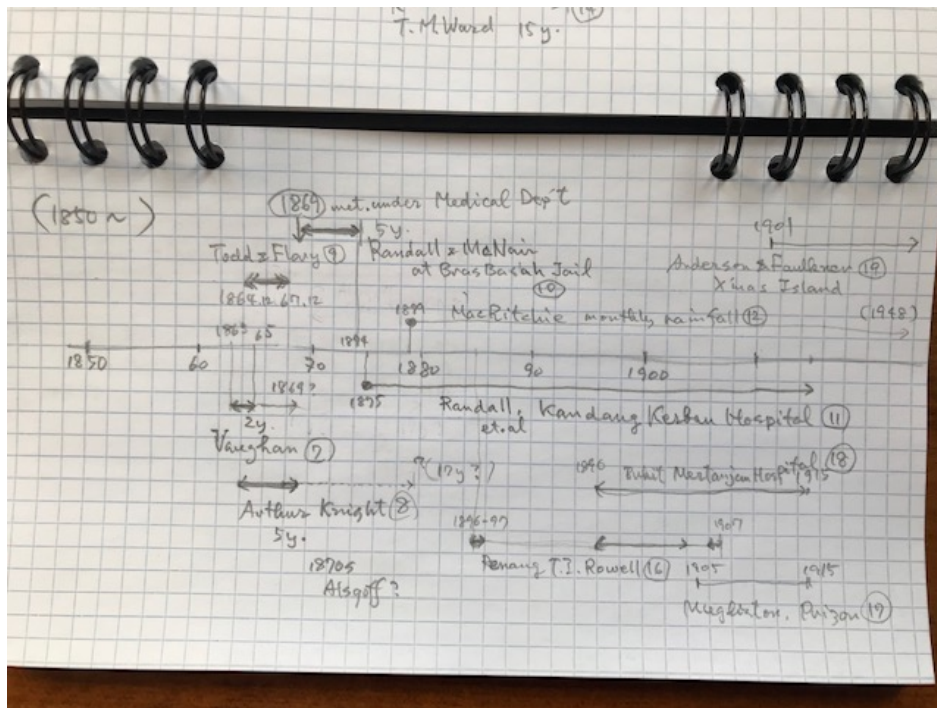 T.M.Ward 15y.
(1850~)
1869 met. under Medical Dep't
5y.
1901
Todd & Flary 9
Randall & McNair
at Bras Basah Jail
10
Anderson & Faulkner 19
Xmas Island
1864.12 67.12
1879
MacRitchie monthly rainfall 12
(1948)
1863 65
1874
1850 60 70 1880 90 1900
1869?
1875
Randall, et.al Kandang Kerbau Hospital 11
2y.
Vaughan 7
?(17y?)
1896
Hospital 18
1915
Arthur Knight 8
5y.
1907
Penang T.I. Rowell 16
1905 1915
1870s
Alsgoff?
Prizon 17